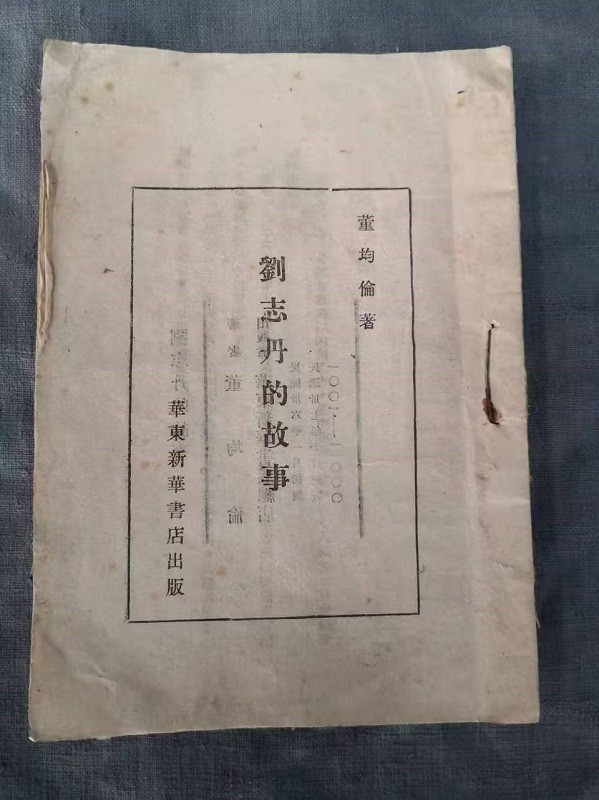 董均倫著
劉志丹的故事
華東新華書店出版